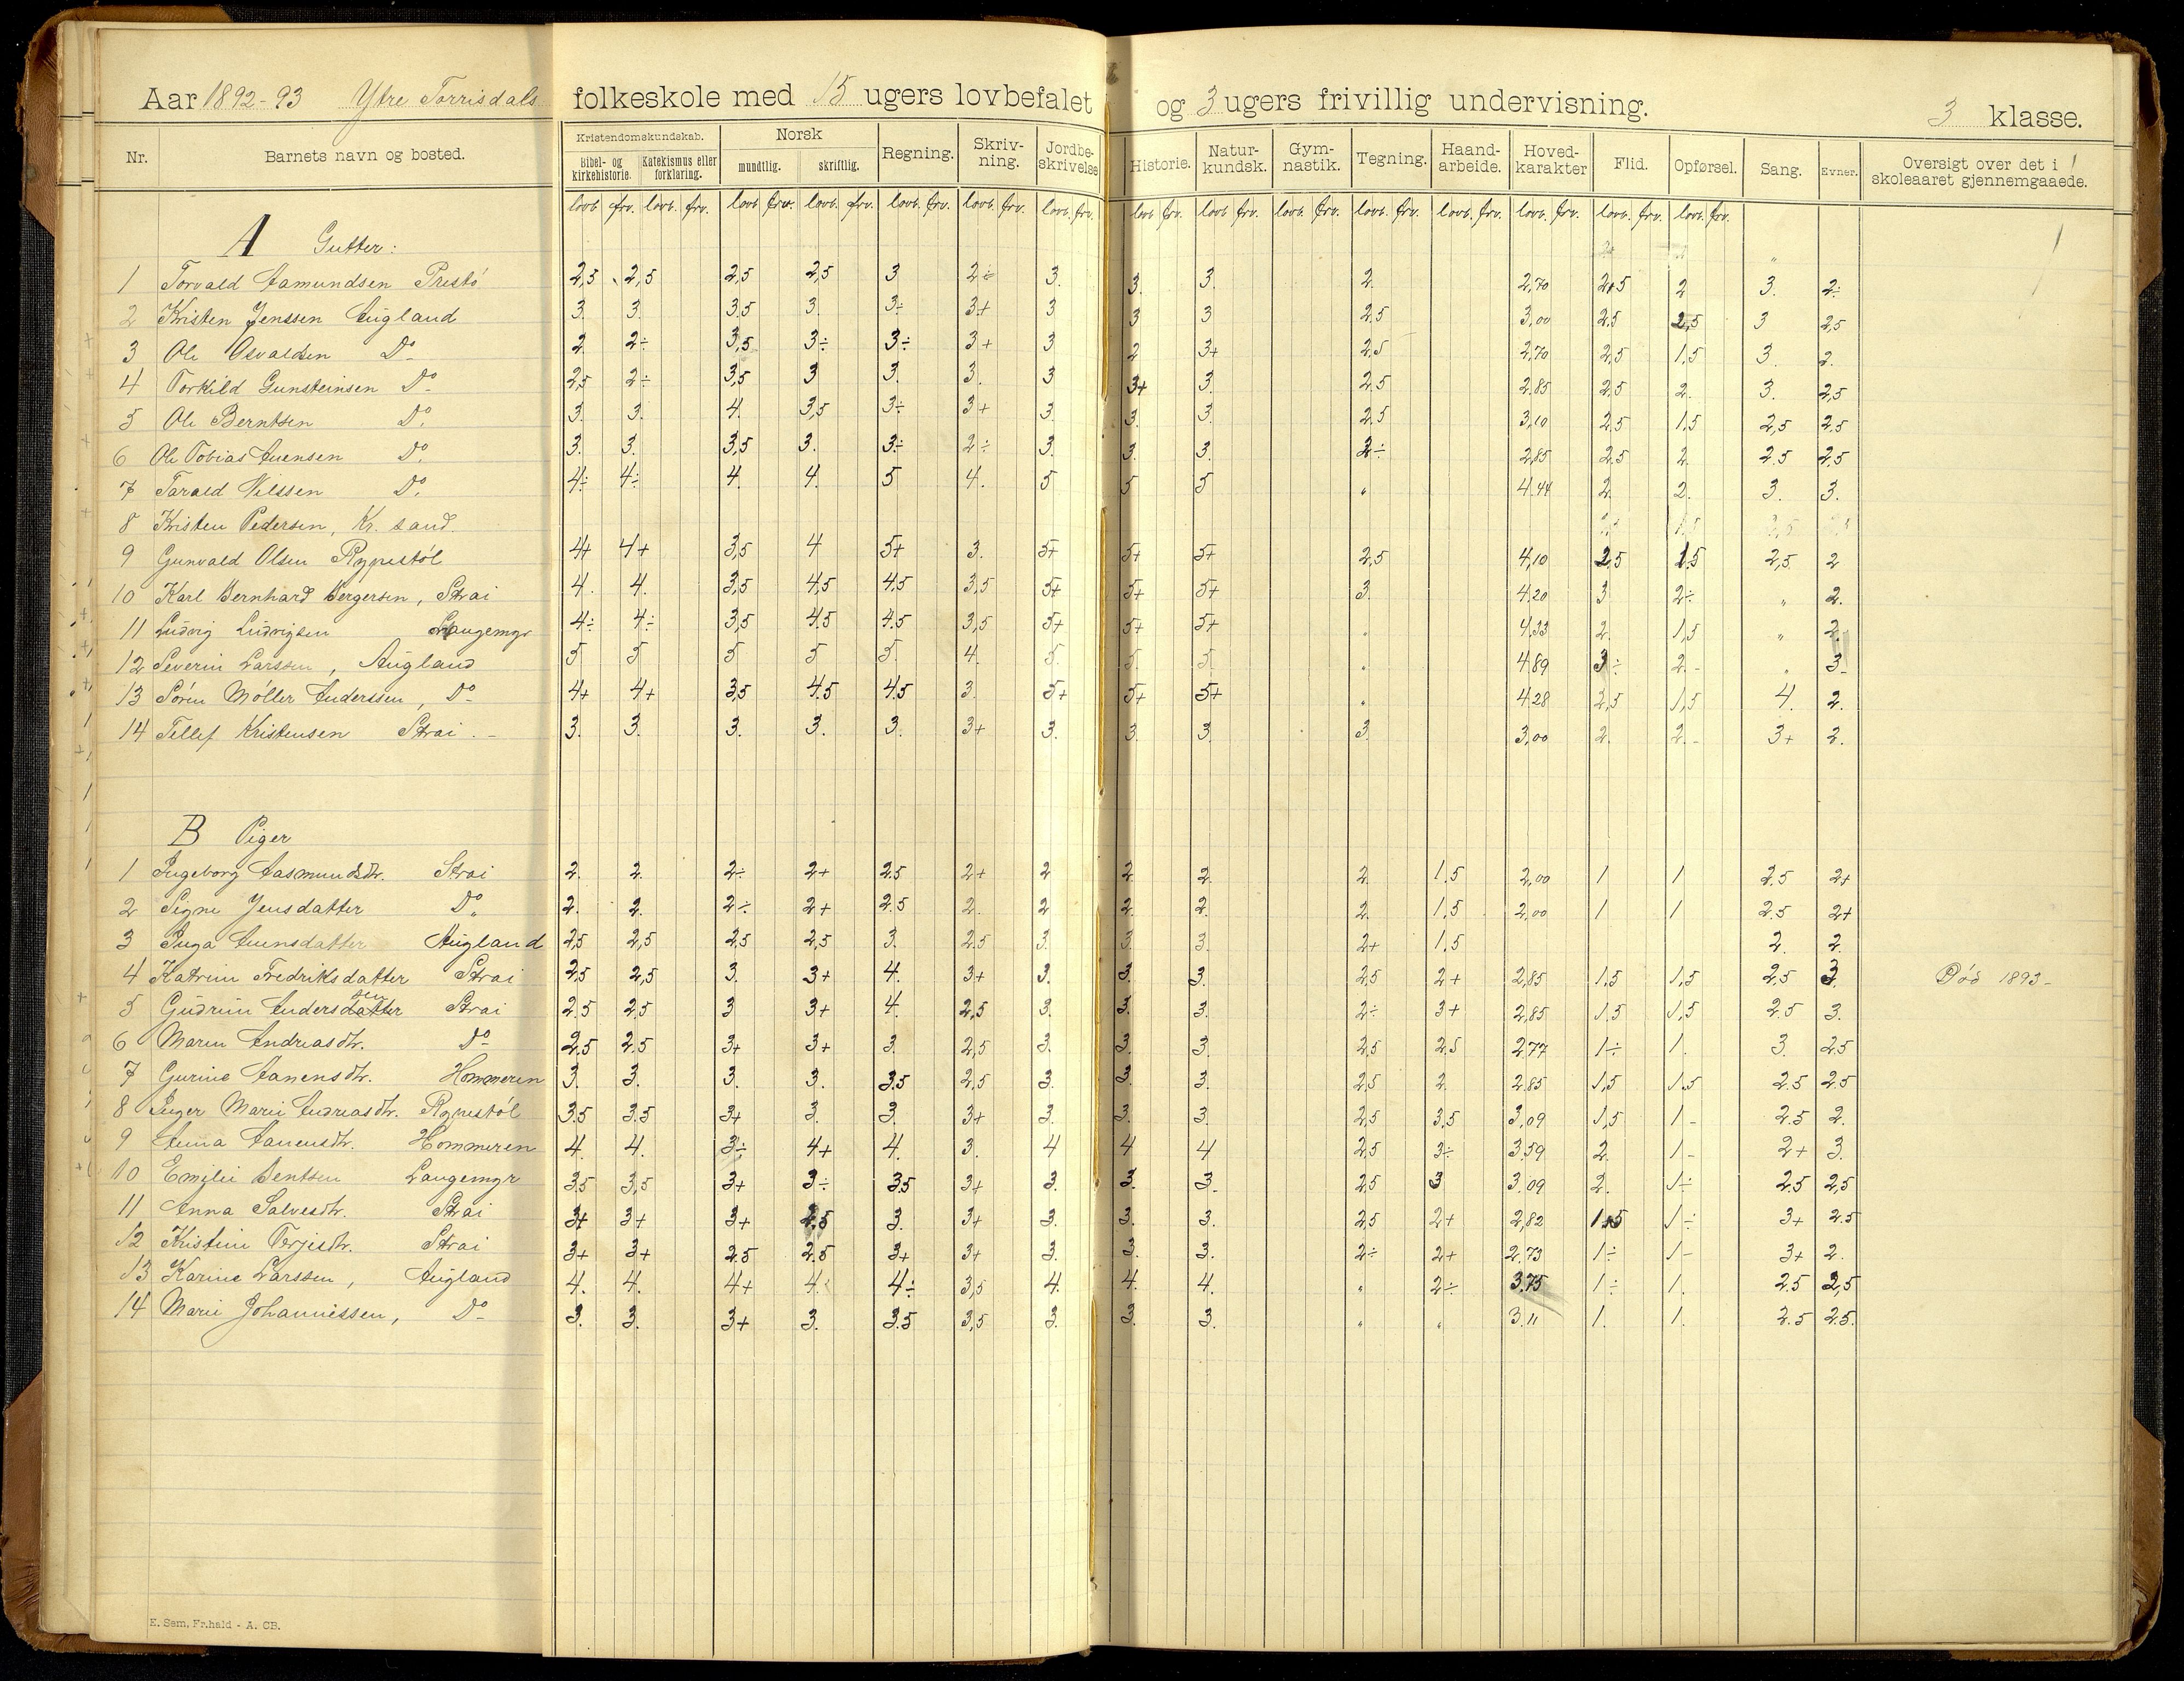 Aar 1892-93 Ytre Torrisdals folkeskole med 15 ugers lovbefalet og 3 ugers frivillig undervisning. 3 klasse.
Nr. Barnets navn og bosted. Kristendomskundskab. Bibel- og kirkehistorie. Katekismus eller forklaring. Norsk mundtlig. skriftlig. Regning. Skriv-ning. Jordbe-skrivelse Historie. Natur-kundsk. Gym-nastik. Tegning. Haand-arbeide. Hoved-karakter Flid. Opførsel. Sang. Evner. Oversigt over det i skoleaaret gjennemgaaede.
lovb. frv. lovb. frv. lovb. frv. lovb. frv. lovb. frv. lovb. frv. lovb. frv. lovb. frv. lovb. frv. lovb. frv. lovb. frv. lovb. frv. lovb. frv. lovb. frv. lovb. frv.
A Gutter:
1 Torvald Aamundsen Prestö 2,5 2,5 2,5 2,5 3 2÷ 3. 3. 3. 2. 2,70 2,5 2 3. 2÷
2 Kristen Jenssen Augland 3. 3. 3,5 3. 3÷ 3+ 3 3 3 2,5 3,00 2,5 2,5 3 2,5
3 Ole Osvaldsen Do 2 2÷ 3,5 3÷ 3÷ 3+ 3 2 3+ 2,5 2,70 2,5 1,5 3. 2.
4 Torkild Gunsteinsen Do 2,5 2÷ 3,5 3 3. 3. 3 3+ 3. 2,5 2,85 2,5 2. 3. 2,5
5 Ole Berntsen Do. 3. 3. 4. 3,5 3÷ 3+ 3. 3. 3. 2,5 3,10 2,5 1,5 2,5 2,5
6 Ole Tobias Auensen Do. 3. 3. 3,5 3. 3÷ 2÷ 3. 3. 3. 2÷ 2,85 2,5 2. 2.5 2,5
7 Tarald Nilssen Do. 4÷ 4÷ 4. 4. 5 4. 5 5 5 " 4.44 2. 2. 3. 3.
8 Kristen Pedersen, Kr. sand.
9 Gunvald Olsen Rypestöl 4+ 4+ 3,5 4 5+ 3. 5+ 5+ 5+ 2,5 4,10 2,5 1,5 2,5 2
10 Karl Bernhard Bergersen, Strai 4. 4. 3,5 4,5 4,5 3,5 5+ 5+ 5+ 3. 4.20 3 2÷ " 2.
11 Ludvig Ludvigsen Langemyr 4÷ 4÷ 3,5 4.5 4.5 3,5 5+ 5+ 5+ " 4,33 2. 1,5 " 2.
12 Severin Larssen, Augland 5 5 5 5 5. 4. 5. 5. 5. " 4.89 3÷ 2- " 3-
13 Sören Möller Anderssen, Do 4+ 4+ 3,5 4.5 4.5 3. 5+ 5+ 5+ " 4.28 2,5 1,5 4. 2.
14 Tellef Kristensen Strai 3. 3. 3. 3. 3. 3+ 3. 3. 3. 3. 3,00 2. 2- 3+ 2.
B Piger
1 Ingeborg Aasmundsdtr. Strai 2. 2. 2÷ 2+ 2.5 2+ 2 2. 2. 2. 1.5 2,00 1 1 2.5 2+
2 Signe Jensdatter Do 2. 2. 2÷ 2+ 2.5 2. 2 2. 2. 2. 1,5 2,00 1 1 2.5 2+
3 Inga Auensdatter Augland 2,5 2,5 2,5 2,5 3. 2.5 3. 3. 3. 2+ 1.5 2. 2.
4 Katrine Fredriksdatter Strai 2,5 2,5 3. 3+ 4. 3+ 3. 3. 3. 2,5 2+ 2,85 1.5 1,5 2.5 3. Död 1893-
5 Gudrun Andersdatter sen Strai 2.5 2.5 3 3+ 4. 2,5 3. 3. 3. 2÷ 3+ 2,85 1.5 1,5 2.5 3.
6 Maren Andreasdtr. Do 2.5 2.5 3+ 3+ 3. 2,5 3. 3. 3. 2,5 2,5 2,77 1÷ 1. 3. 2.5
7 Gurine Aanensdtr. Hommeren 3. 3. 3. 3. 3.5 2,5 3. 3. 3. 2,5 2. 2.85 1,5 1,5 2.5 2.5
8 Inger Marie Andreasdtr. Rypestöl 3.5 3.5 3+ 3. 3. 3+ 3. 3. 3. 2,5 3,5 3,09 1,5 1- 2.5 2.
9 Anna Aanensdtr. Hommeren 4. 4. 3÷ 4+ 4. 3. 4 4 4 2,5 3÷ 3.59 2. 1- 2+ 3.
10 Emilie Bentsen Langemyr 3.5 3,5 3+ 3÷ 3.5 3+ 3. 3. 3. 2,5 3 3.09 2. 1÷ 2.5 2,5
11 Anna Salvesdtr. Strai 3+ 3+ 3+ 2,5 3. 3+ 3. 3. 3. 2,5 2+ 2,82 1,5 1÷ 3+ 2.5
12 Kristine Terjesdtr. Strai 3+ 3+ 2.5 2.5 3+ 3+ 3. 3. 3. 2÷ 2+ 2.73 1÷ 1- 3+ 2.
13 Karine Larssen, Augland 4. 4. 4+ 4. 4÷ 3,5 4. 4. 4. " 2÷ 3.75 1÷ 1. 2.5 2,5
14 Marie Johannessen, Do 3. 3. 3+ 3. 3.5 3,5 3. 3. 3. " " 3.11 1. 1. 2.5 2.5.
E. Sem, Fr.hald - A. CB.